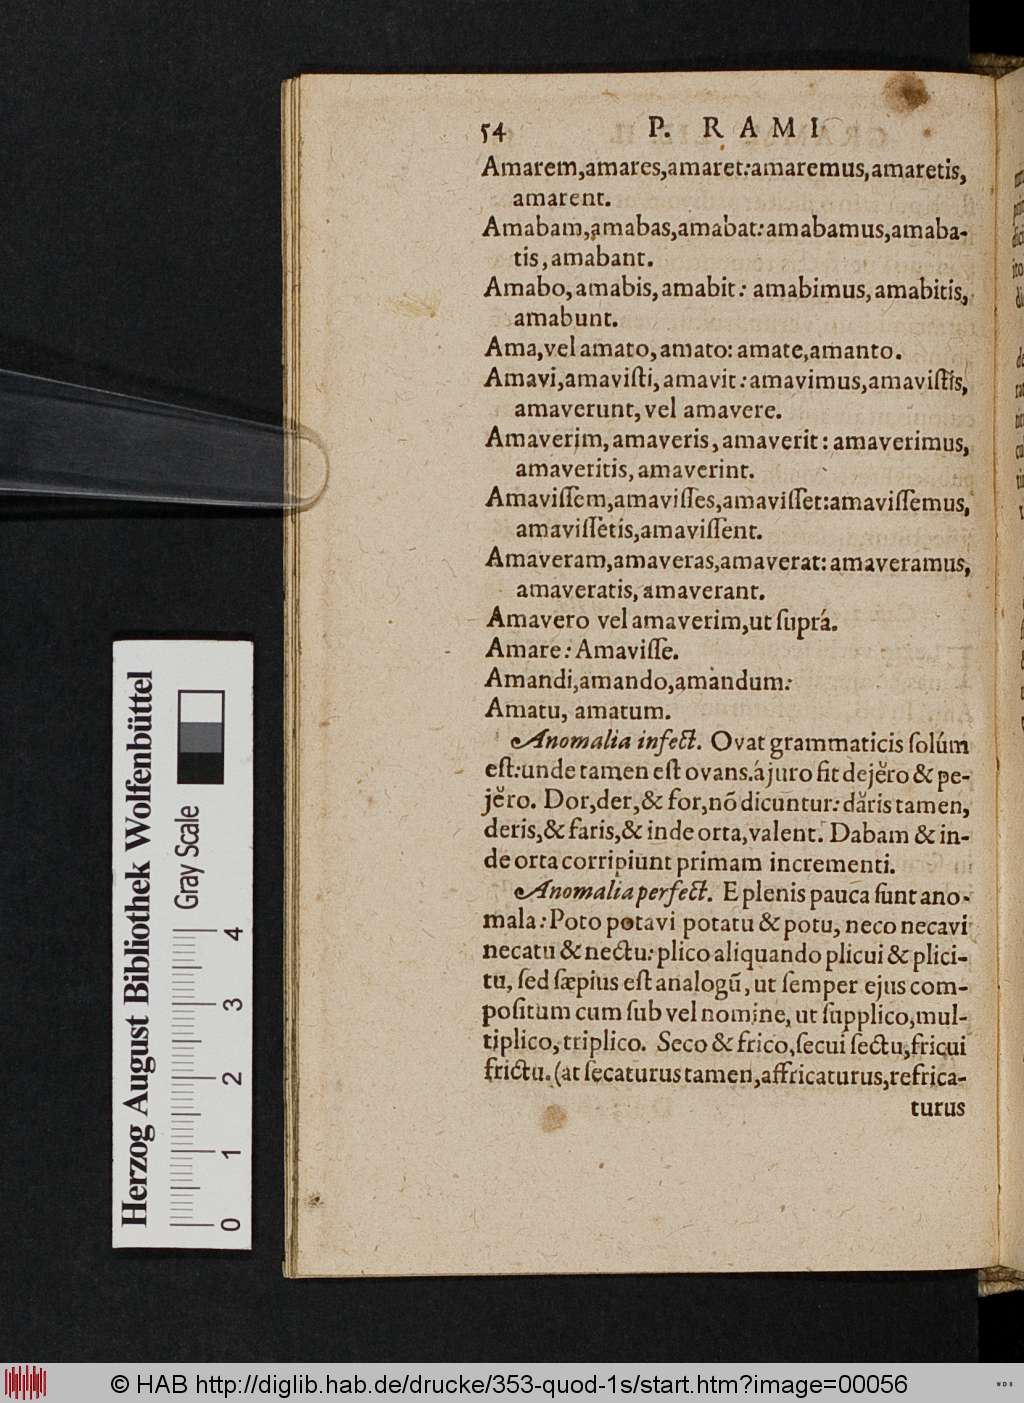 54 P. RAMI
Amarem,amares,amaret:amaremus,amaretis,
amarent.
Amabam,amabas,amabat:amabamus,amaba-
tis,amabant.
Amabo,amabis,amabit: amabimus,amabitis,
amabunt.
Ama,vel amato,amato: amate,amanto.
Amavi,amaviſti,amavit:amavimus,amaviſtis,
amaverunt,vel amavere.
Amaverim,amaveris,amaverit: amaverimus,
amaveritis,amaverint.
Amaviſſem,amaviſſes,amaviſſet:amaviſſemus,
amaviſſetis,amaviſſent.
Amaveram,amaveras,amaverat:amaveramus,
amaveratis,amaverant.
Amavero vel amaverim,ut ſuprá.
Amare: Amaviſſe.
Amandi,amando,amandum:
Amatu, amatum.
Anomalia infect. Ovat grammaticis ſolúm
eſt:unde tamen eſt ovans.á juro fit dejĕro & pe-
jĕro. Dor,der,& for,nõ dicuntur: dăris tamen,
deris,& faris,& inde orta,valent. Dabam & in-
de orta corripiunt primam incrementi.
Anomalia perfect. E plenis pauca ſunt ano-
mala: Poto potavi potatu & potu, neco necavi
necatu & nectu: plico aliquando plicui & plici-
tu, ſed ſæpius eſt analogũ, ut ſemper ejus com-
poſitum cum ſub vel nomine, ut ſupplico,mul-
tiplico,triplico. Seco & frico,ſecui ſectu,fricui
frictu.(at ſecaturus tamen,affricaturus,refrica-
turus
Herzog August Bibliothek Wolfenbüttel
Gray Scale
0 1 2 3 4
© HAB http://diglib.hab.de/drucke/353-quod-1s/start.htm?image=00056